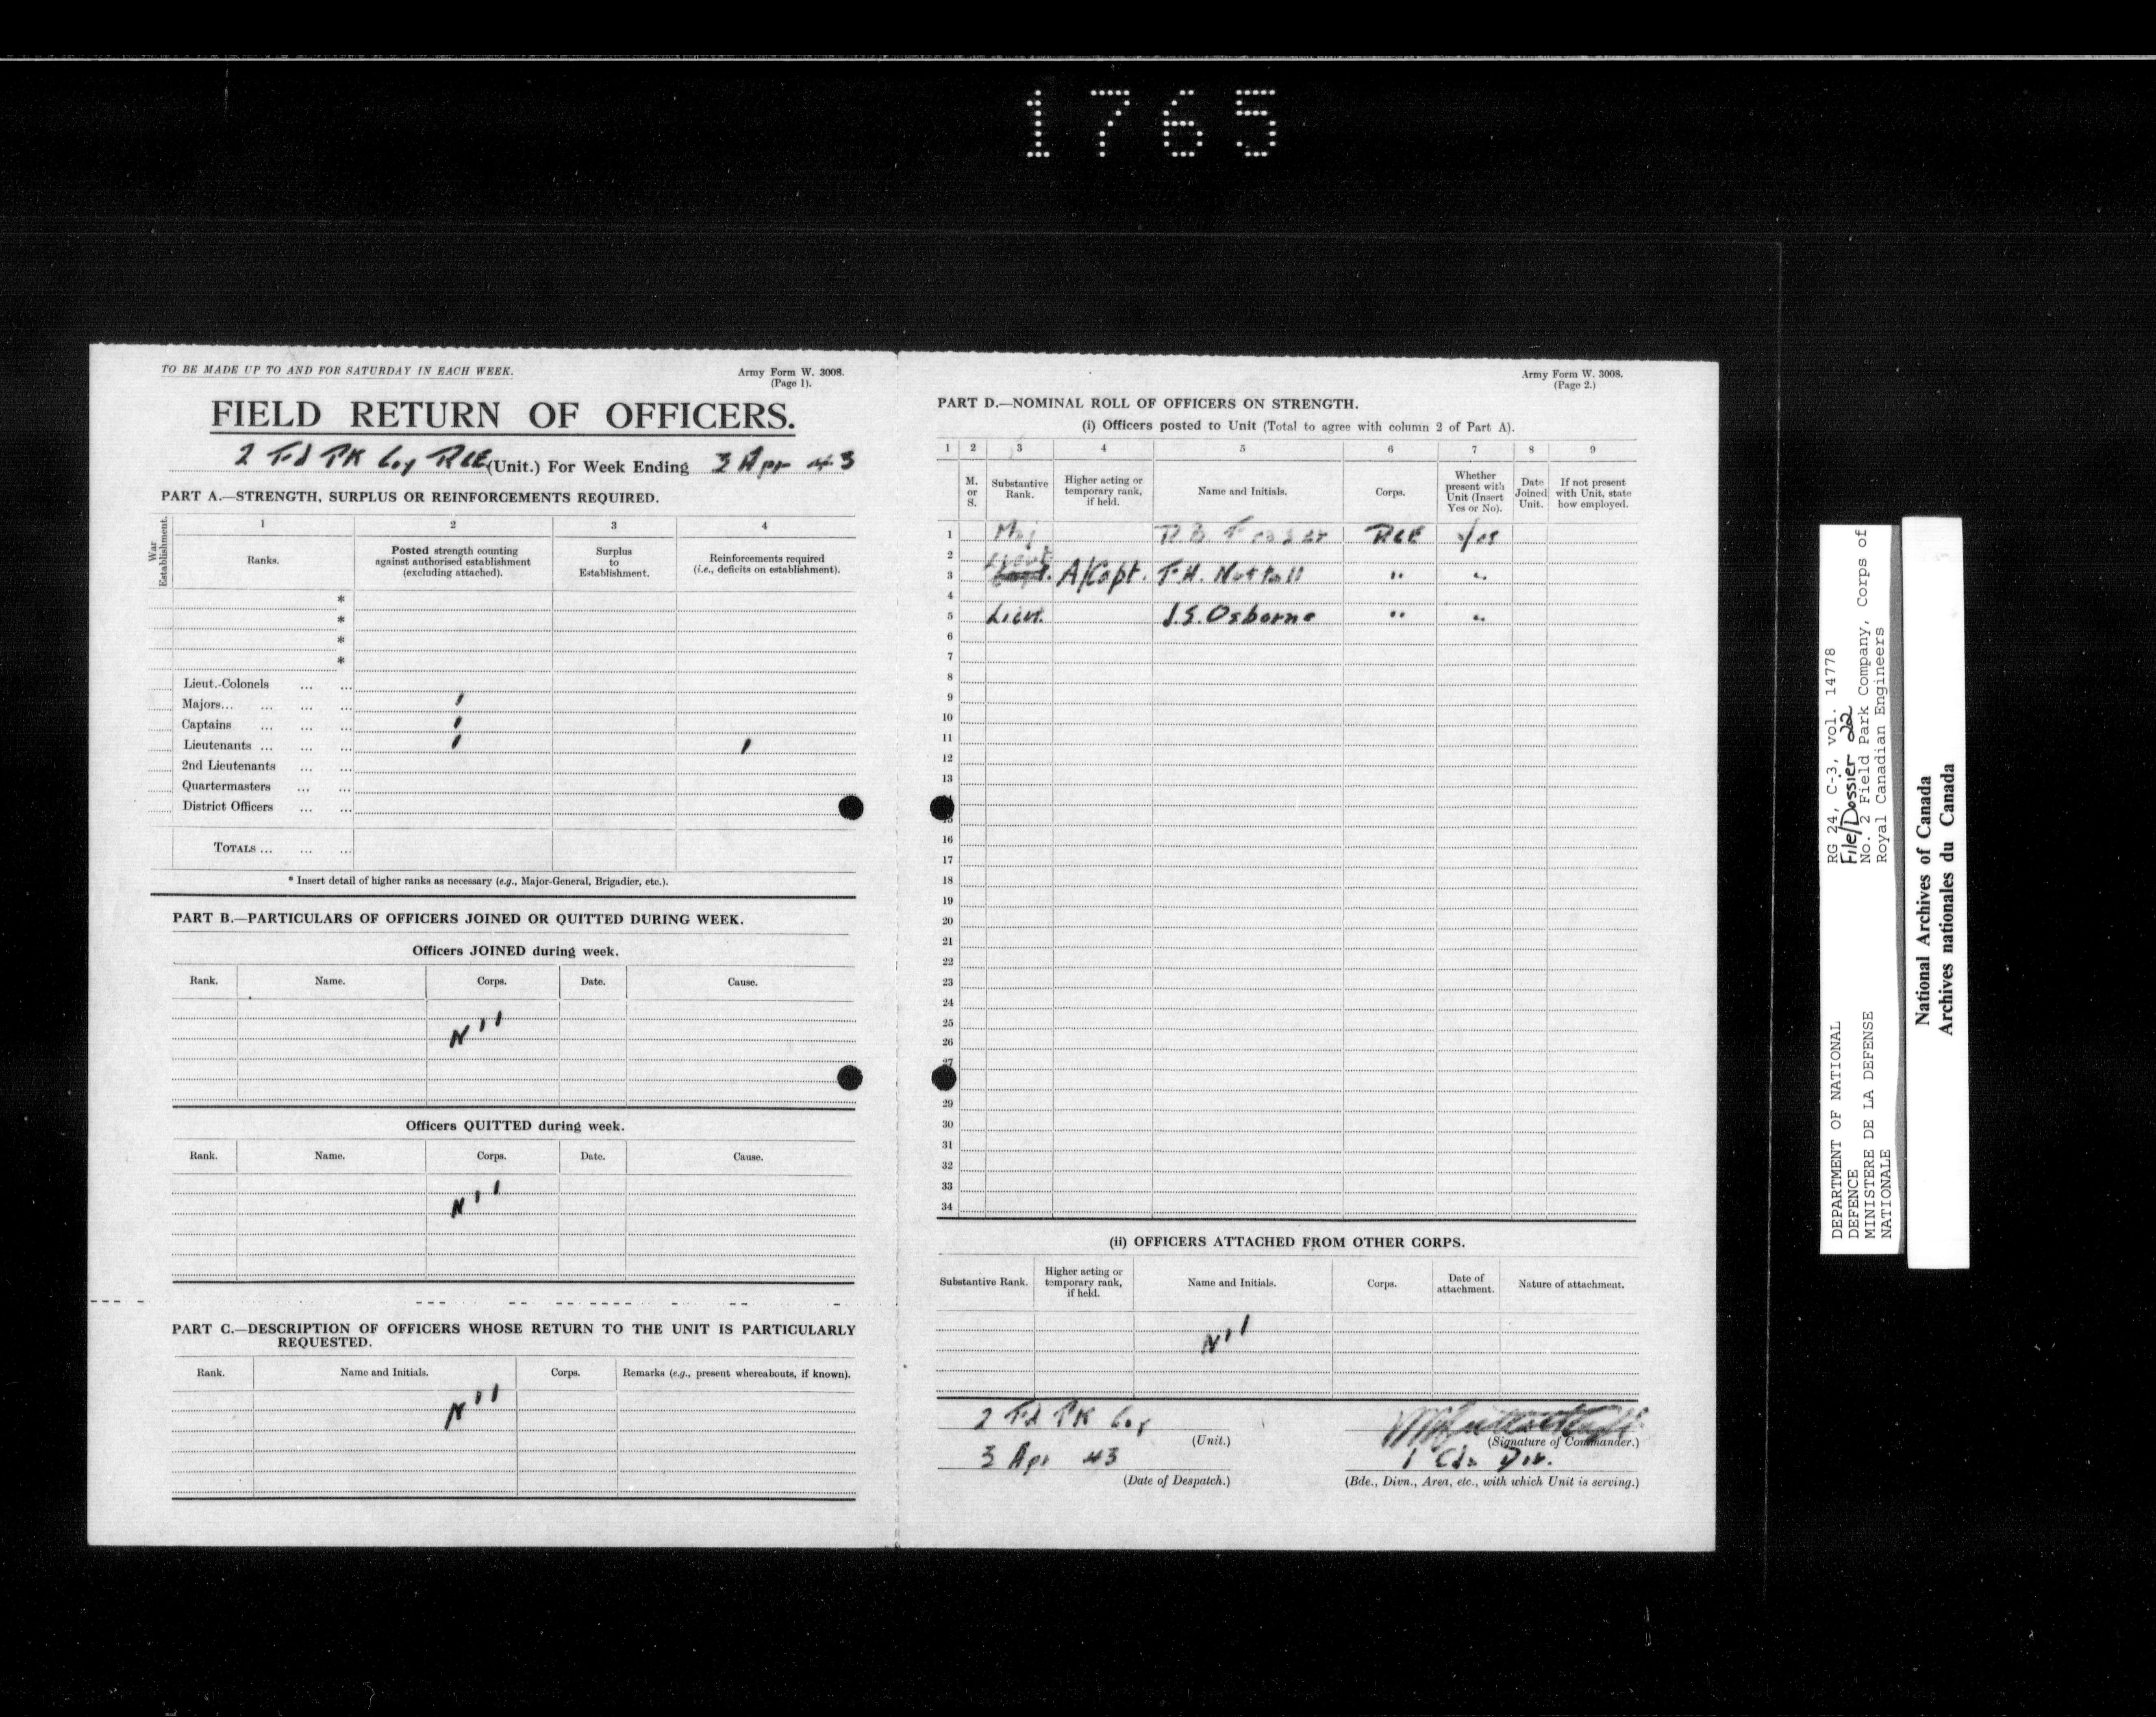 1765
TO BE MADE UP TO AND FOR SATURDAY IN EACH WEEK.
Army Form W. 3008.
(Page 1).
FIELD RETURN OF OFFICERS.
2 Fd Pk Coy RCE (Unit.) For Week Ending 3 Apr 43
PART A.—STRENGTH, SURPLUS OR REINFORCEMENTS REQUIRED.
War Establishment.
1 2 3 4
Ranks.
Posted strength counting against authorised establishment (excluding attached).
Surplus to Establishment.
Reinforcements required (i.e., deficits on establishment).
*
*
*
*
Lieut.-Colonels ... ...
Majors... ... ... ... 1
Captains ... ... ... 1
Lieutenants ... ... ... 1 1
2nd Lieutenants ... ...
Quartermasters ... ...
District Officers ... ...
TOTALS ... ... ...
* Insert detail of higher ranks as necessary (e.g., Major-General, Brigadier, etc.).
PART B.—PARTICULARS OF OFFICERS JOINED OR QUITTED DURING WEEK.
Officers JOINED during week.
Rank. Name. Corps. Date. Cause.
Nil
Officers QUITTED during week.
Rank. Name. Corps. Date. Cause.
Nil
PART C.—DESCRIPTION OF OFFICERS WHOSE RETURN TO THE UNIT IS PARTICULARLY
REQUESTED.
Rank. Name and Initials. Corps. Remarks (e.g., present whereabouts, if known).
Nil
Army Form W. 3008.
(Page 2.)
PART D.—NOMINAL ROLL OF OFFICERS ON STRENGTH.
(i) Officers posted to Unit (Total to agree with column 2 of Part A).
1 2 3 4 5 6 7 8 9
M. or S.
Substantive Rank.
Higher acting or temporary rank, if held.
Name and Initials.
Corps.
Whether present with Unit (Insert Yes or No).
Date Joined Unit.
If not present with Unit, state how employed.
1 Maj R.B. Fraser RCE Yes
2 Lieut
3 A/Capt. T.H. Nuttall " "
4
5 Lieut. J.S. Osborne " "
6
7
8
9
10
11
12
13
15
16
17
18
19
20
21
22
23
24
25
26
27
29
30
31
32
33
34
(ii) OFFICERS ATTACHED FROM OTHER CORPS.
Substantive Rank.
Higher acting or temporary rank, if held.
Name and Initials.
Corps.
Date of attachment.
Nature of attachment.
Nil
2 Fd Pk Coy
(Unit.)
(Signature of Commander.)
3 Apr 43
1 Cdn Div.
(Date of Despatch.)
(Bde., Divn., Area, etc., with which Unit is serving.)
DEPARTMENT OF NATIONAL
DEFENCE
MINISTERE DE LA DEFENSE
NATIONALE
RG 24, C-3, vol. 14778
File/Dossier 22
No. 2 Field Park Company, Corps of
Royal Canadian Engineers
National Archives of Canada
Archives nationales du Canada